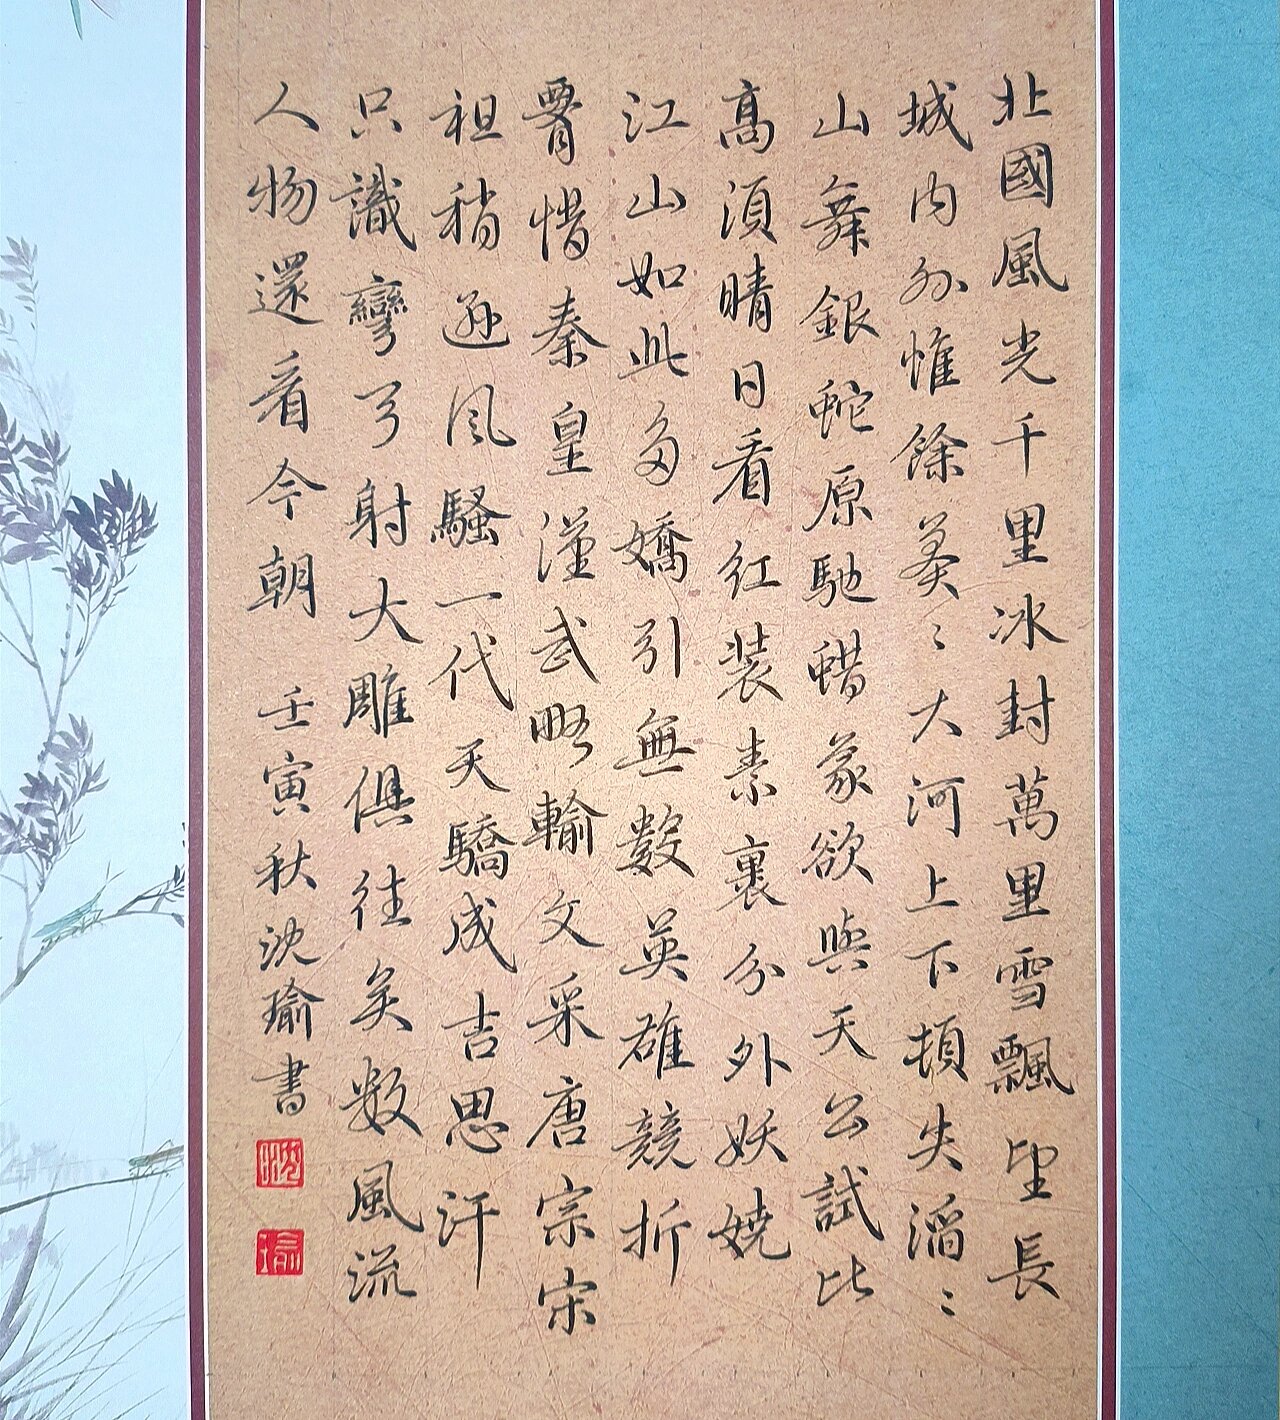 北國風光千里冰封萬里雪飄望長
城内外惟餘莽〻大河上下頓失滔〻
山舞銀蛇原馳蜡象欲與天公試比
高須晴日看紅裝素裹分外妖嬈
江山如此多嬌引無數英雄競折
腰惜秦皇漢武略輸文采唐宗宋
祖稍遜風騷一代天驕成吉思汗
只識彎弓射大雕俱往矣數風流
人物還看今朝 壬寅秋沈瑜書
沈
瑜